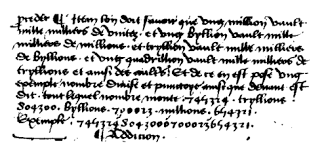 preder ¶ Item lon doit sauoir que ung million vault
mille milliers de unitez · et ung byllion vault mille
milliers de millions · et tryllion vault mille milliers
de byllions · et ung quadrillion vault mille milliers de
tryllions et ainsi des aultrs · Et de ce en est pose ung
exemple nombre diuise et punctoye ainsi que deuant est
dit · tout lequel nombre monte · 745324 · tryllions ·
804300 · byllions · 700023 · millions · 654321 ·
Exemple · 745324'804300'700023'654321 ·
¶ Addicion ·